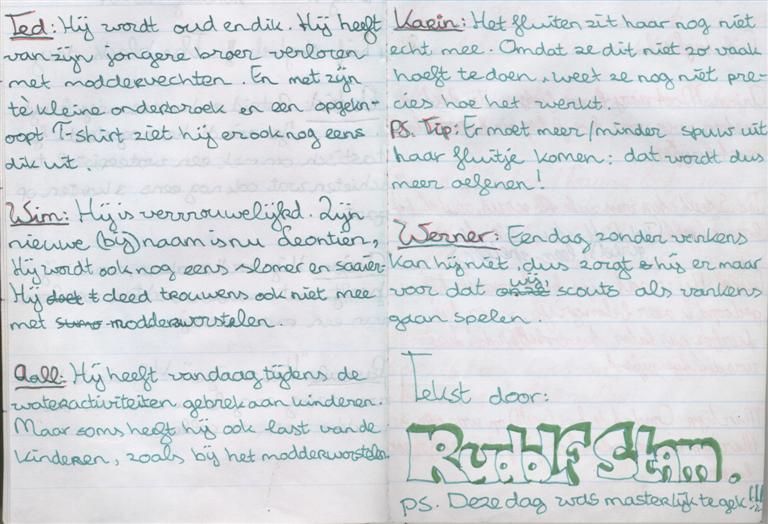 Ted: Hij wordt oud en dik. Hij heeft
van zijn jongere broer verloren
met moddervechten. En met zijn
tè kleine onderbroek en een opgekn-
oopt T-shirt ziet hij er ook nog eens
dik uit.
Wim: Hij is verrrouwelijkd. Zijn
nieuwe (bij)naam is nu Leontien,
Hij wordt ook nog eens slomer en saaier.
Hij doet t deed trouwens ook niet mee
met sumo modderworstelen.
Aall: Hij heeft vandaag tijdens de
wateractiviteiten gebrek aan kinderen.
Maar soms heeft hij ook last van de
kinderen, zoals bij het modderworstelen
Karin: Het fluiten zit haar nog niet
echt mee. Omdat ze dit niet zo vaak
hoeft te doen, weet ze nog niet pre-
cies hoe het werkt.
PS. Tip: Er moet meer/minder spuw uit
haar fluitje komen: dat wordt dus
meer oefenen!
Werner: Een dag zonder varkens
kan hij niet, dus zorgt hij er maar
voor dat onze wij, scouts als varkens
gaan spelen.
Tekst door:
Rudolf Stam.
ps. Deze dag was masterlijk te gek!!!